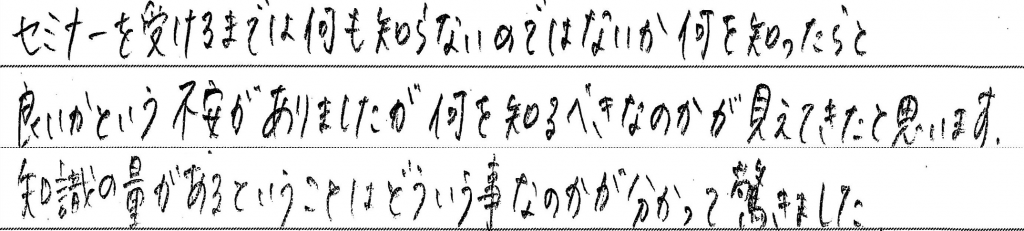 セミナーを受けるまでは何も知らないのではないか何を知ったらと
良いかという不安がありましたが何を知るべきなのかが見えてきたと思います.
知識の量があるということはどういう事なのかが分かって驚きました